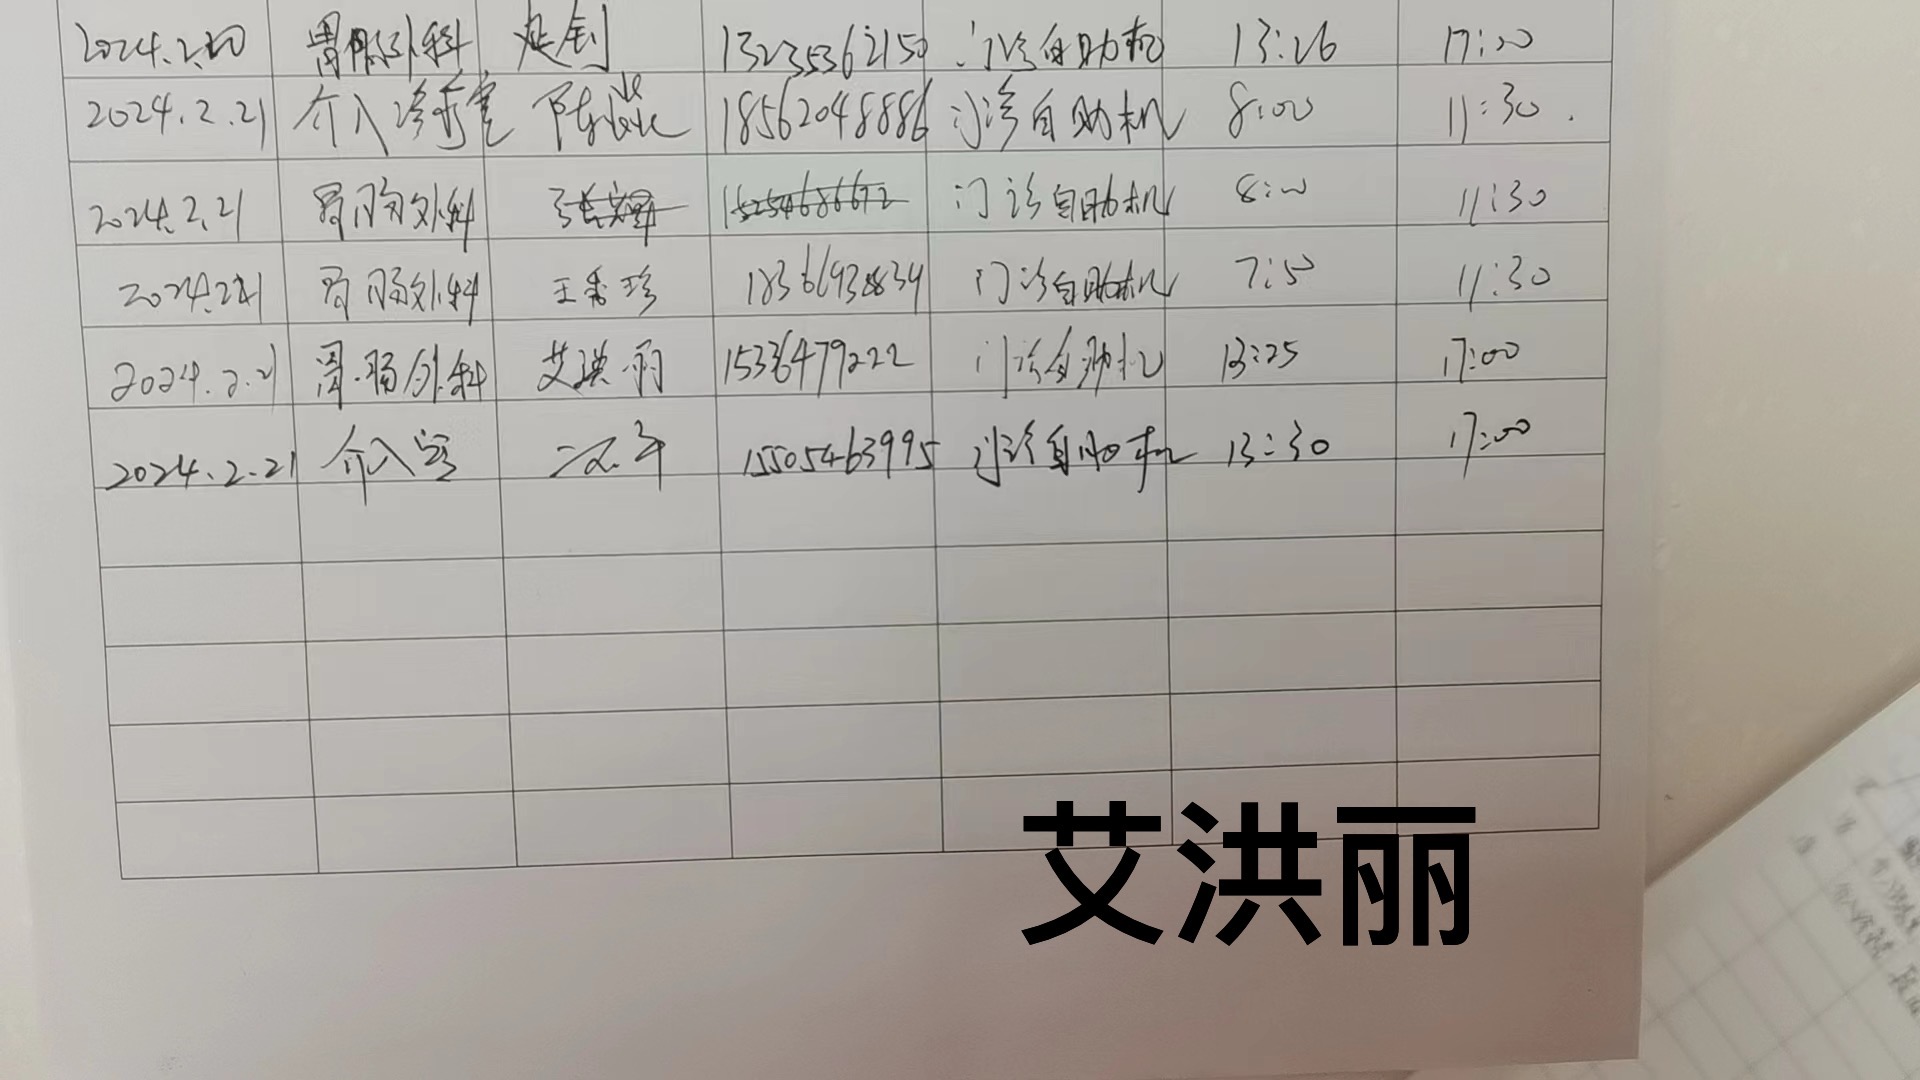 2024.2.20 胃肠外科 13235362150 门诊自助机 13:26 17:00
2024.2.21 介入诊疗室 陈 18562048886 门诊自助机 8:00 11:30.
2024.2.21 胃肠外科 15254686672 门诊自助机 8:00 11:30
2024.2.21 胃肠外科 王秀珍 18366938839 门诊自助机 7:50 11:30
2024.2.21 胃肠外科 艾洪丽 15336479222 门诊自助机 13:25 17:00
2024.2.21 介入室 15505463995 门诊自助机 13:30 17:00
艾洪丽